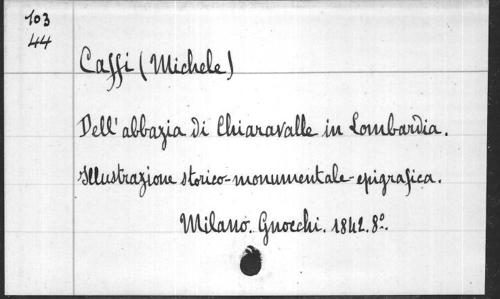 103
44
Caffi (Michele)
Dell' abbazia di Chiaravalle in Lombardia.
Illustrazione storico-monumentale-epigrafica.
Milano. Gnocchi. 1842. 8º.